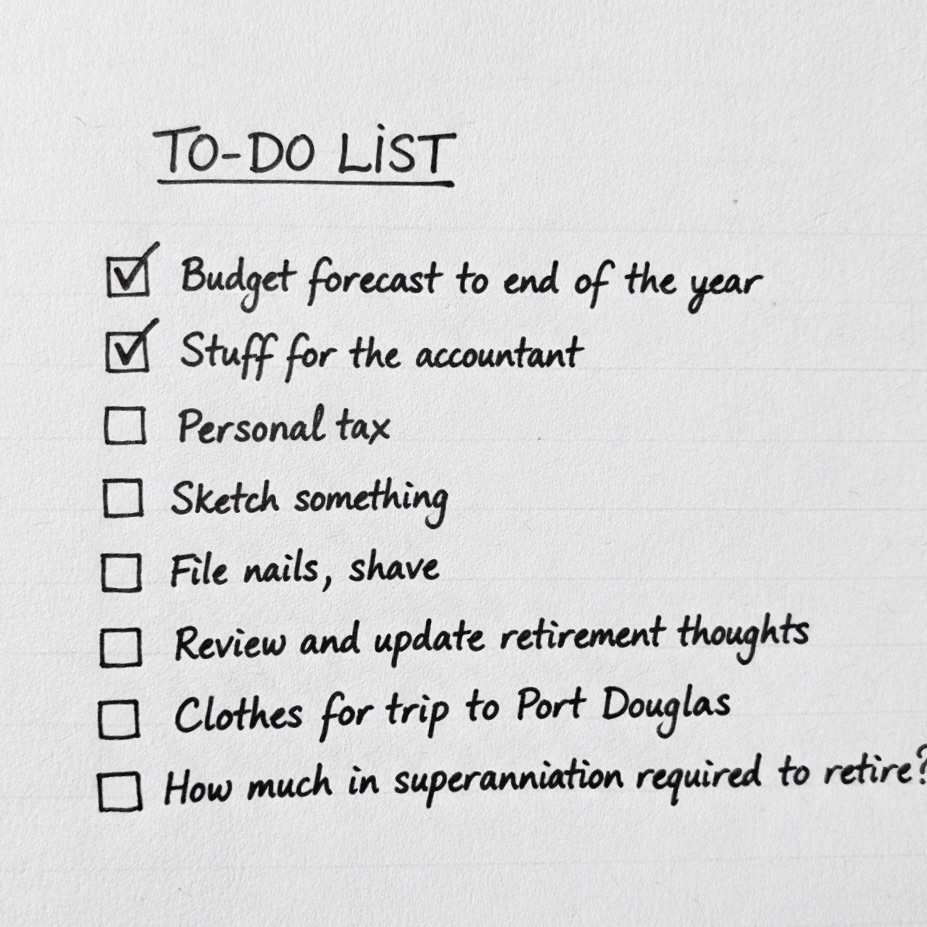 TO-DO LIST
Budget forecast to end of the year
Stuff for the accountant
Personal tax
Sketch something
File nails, shave
Review and update retirement thoughts
Clothes for trip to Port Douglas
How much in superanniation required to retire?